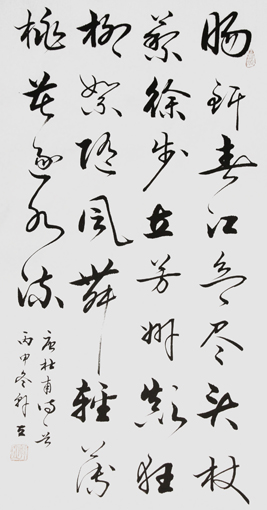 肠断春江欲尽头杖
藜徐步立芳洲颠狂
柳絮随風舞輕薄
桃花逐水流
唐杜甫诗一首
丙申冬